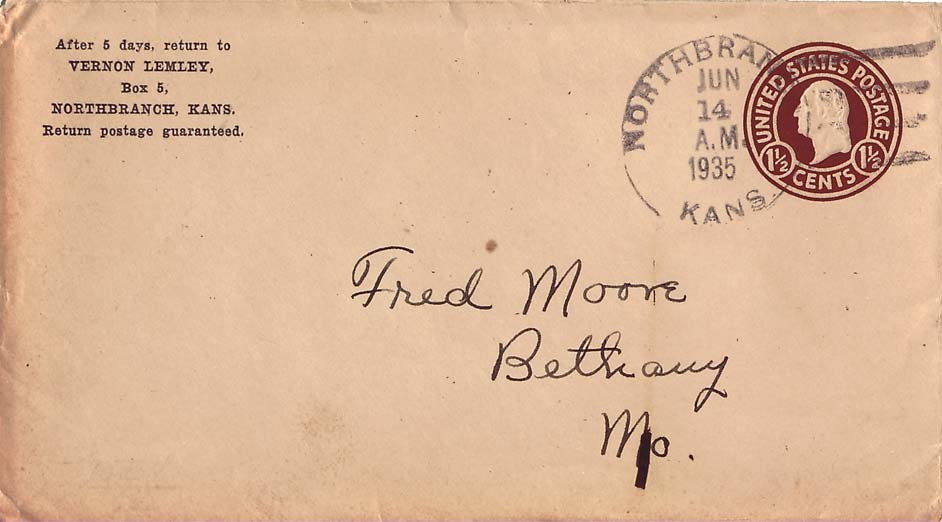 After 5 days, return to
VERNON LEMLEY,
Box 5,
NORTHBRANCH, KANS.
Return postage guaranteed.
NORTHBRAN
JUN
14
A.M.
1935
KANS.
UNITED STATES POSTAGE
1½ CENTS 1½
Fred Moore
Bethany
Mo.